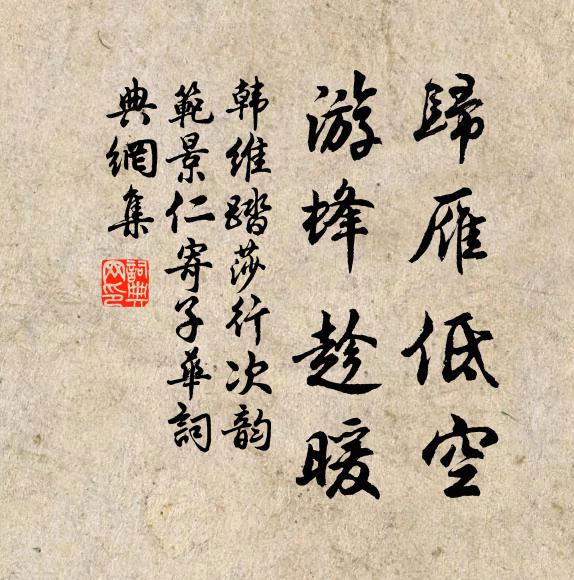 歸雁低空
游蜂趁暖
韩維踏莎行次韵
範景仁寄子華詞
典網集
詞典网印